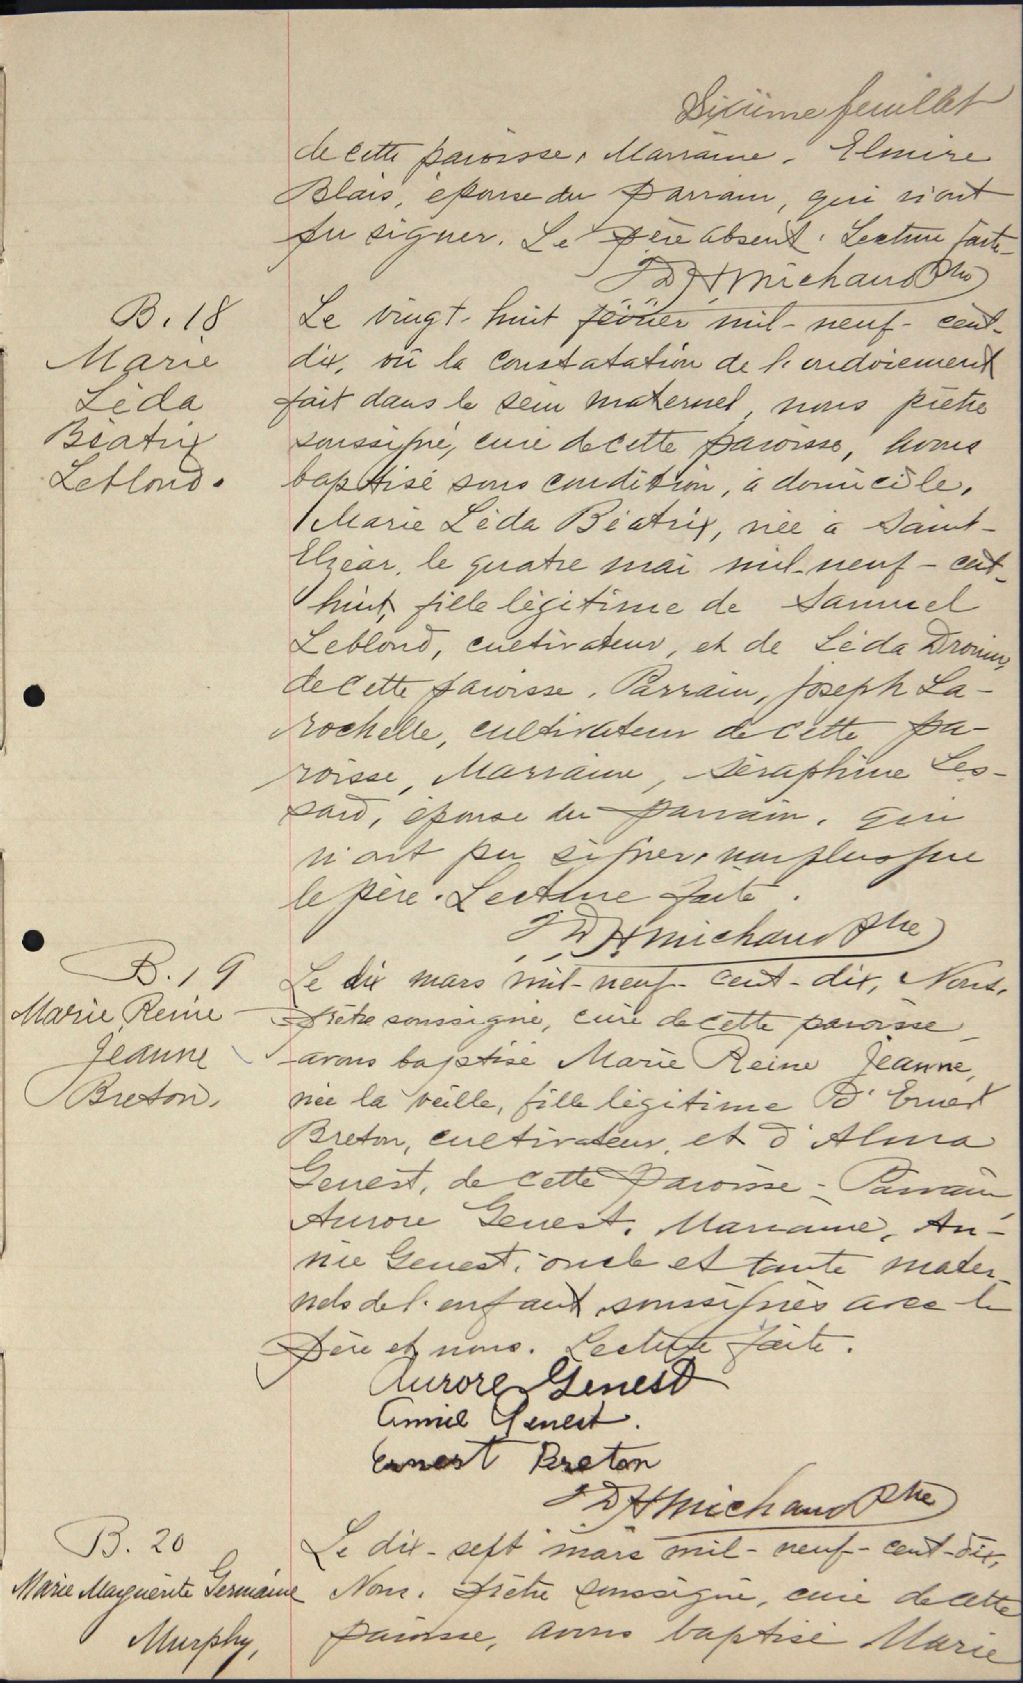 Sixième feuillet
de cette paroisse, Marraine, Elmire
Blais, épouse du parrain, qui n'ont
pu signer. Le père absent. Lecture faite.
J D H Michaud Ptre
B. 18
Marie
Léda
Béatrix
Leblond.
Le vingt-huit février mil-neuf-cent-
dix, vû la constatation de l'ondoiement
fait dans le sein maternel, nous prêtre
soussigné, curé de cette paroisse, avons
baptisé sous condition, à domicile,
Marie Léda Béatrix, née à Saint-
Elzéar, le quatre mai mil-neuf-cent-
huit, fille légitime de Samuel
Leblond, cultivateur, et de Léda Drouin,
de cette paroisse. Parrain, Joseph La-
rochelle, cultivateur de cette pa-
roisse, Marraine, Séraphine Les-
sard, épouse du parrain, qui
n'ont pu signer, non plus que
le père. Lecture faite.
J D H Michaud Ptre
B. 19
Marie Reine
Jeanne
Breton.
Le dix mars mil-neuf-cent-dix, Nous,
Prêtre soussigné, curé de cette paroisse
avons baptisé Marie Reine Jeanne,
née la veille, fille légitime d'Ernest
Breton, cultivateur, et d'Alma
Genest, de cette paroisse - Parrain,
Aurore Genest, Marraine, An-
nie Genest, oncle et tante mater-
nels de l'enfant, soussignés avec le
père et nous. Lecture faite.
Aurore Genest
Annie Genest.
Ernest Breton
J D H Michaud Ptre
B. 20
Marie Marguerite Germaine
Murphy,
Le dix-sept mars mil-neuf-cent-dix,
Nous, Prêtre soussigné, curé de cette
paroisse, avons baptisé Marie